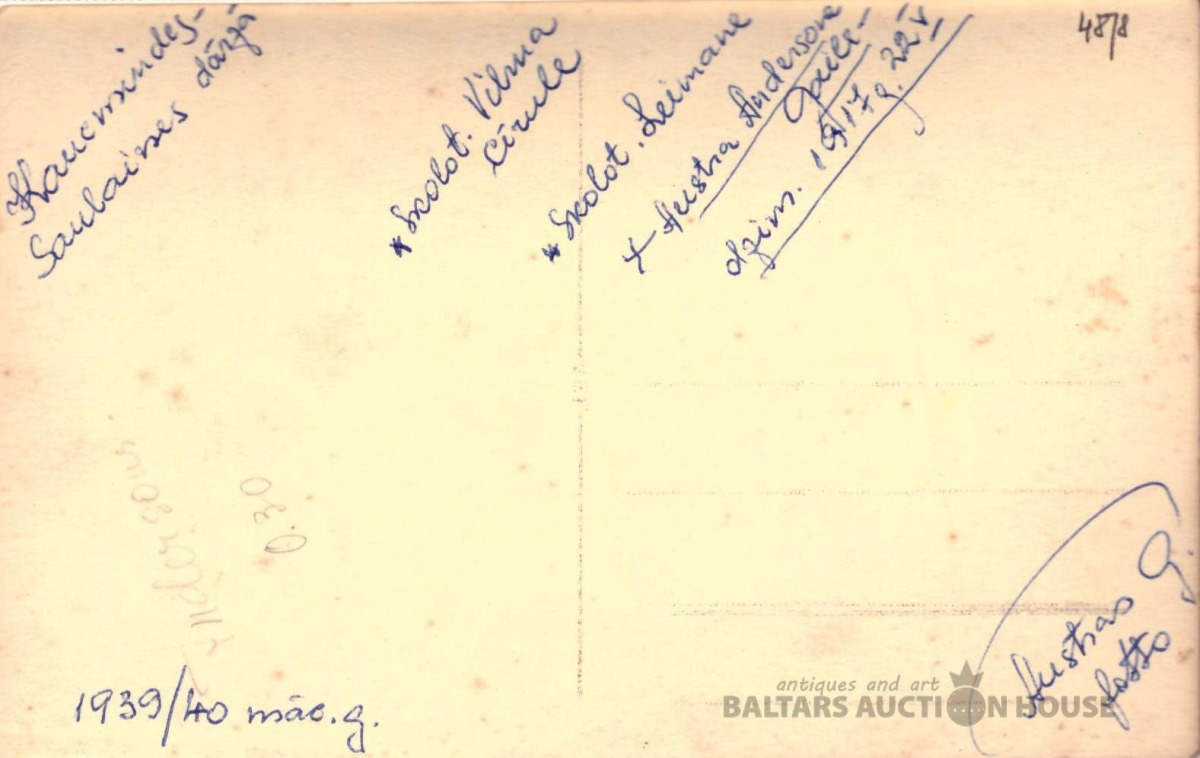 Kaucmindes-
Saulaines dārzā
* Skolot. Vilma
Cīrule
* Skolot. Leimane
+ Austra Andersone
Gaile-
dzim. 1917 g. 22 V
48/8
0.30
1939/40 māc. g.
Austras G.
foto
antiques and art
BALTARS AUCTION HOUSE